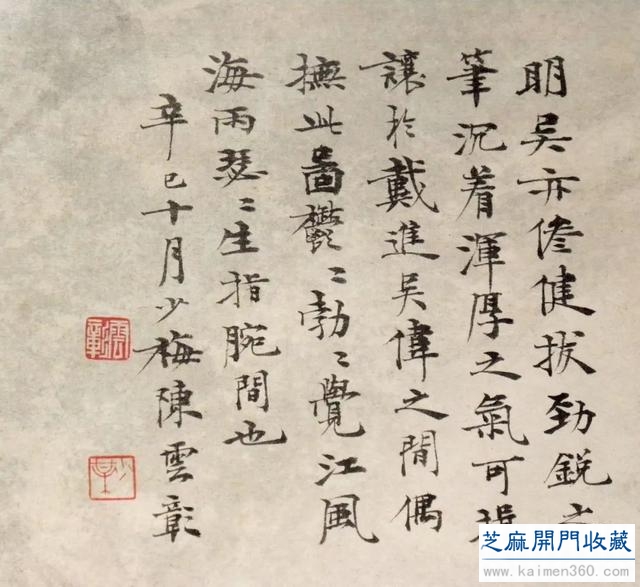 明吳亦僊健拔勁銳之
筆沉着渾厚之氣可揖
讓於戴進吳偉之間偶
撫此圖鬱〻勃〻覺江風
海雨瑟〻生指腕間也
辛巳十月少梅陳雲彰
雲彰
芝麻開門收藏
www.kaimen360.com